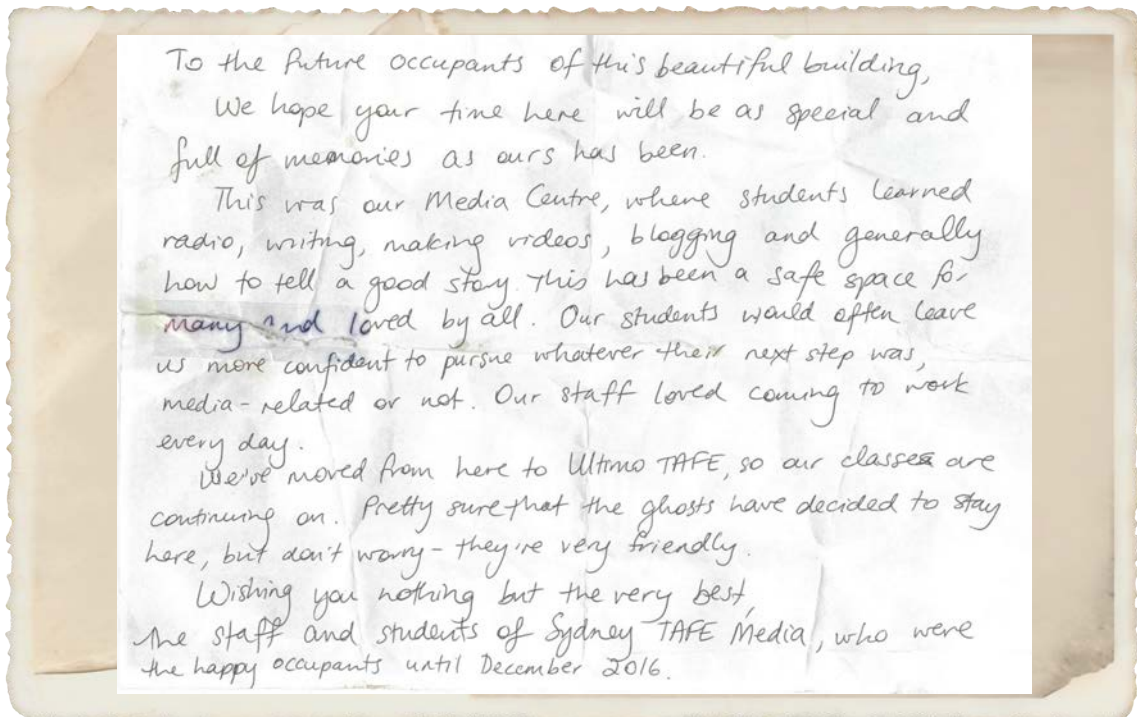 To the future occupants of this beautiful building,
We hope your time here will be as special and
full of memories as ours has been.
This was our Media Centre, where students learned
radio, writing, making videos, blogging and generally
how to tell a good story. This has been a safe space for
many and loved by all. Our students would often leave
us more confident to pursue whatever their next step was,
media-related or not. Our staff loved coming to work
every day.
We've moved from here to Ultimo TAFE, so our classes are
continuing on. Pretty sure that the ghosts have decided to stay
here, but don't worry - they're very friendly.
Wishing you nothing but the very best,
the staff and students of Sydney TAFE Media, who were
the happy occupants until December 2016.